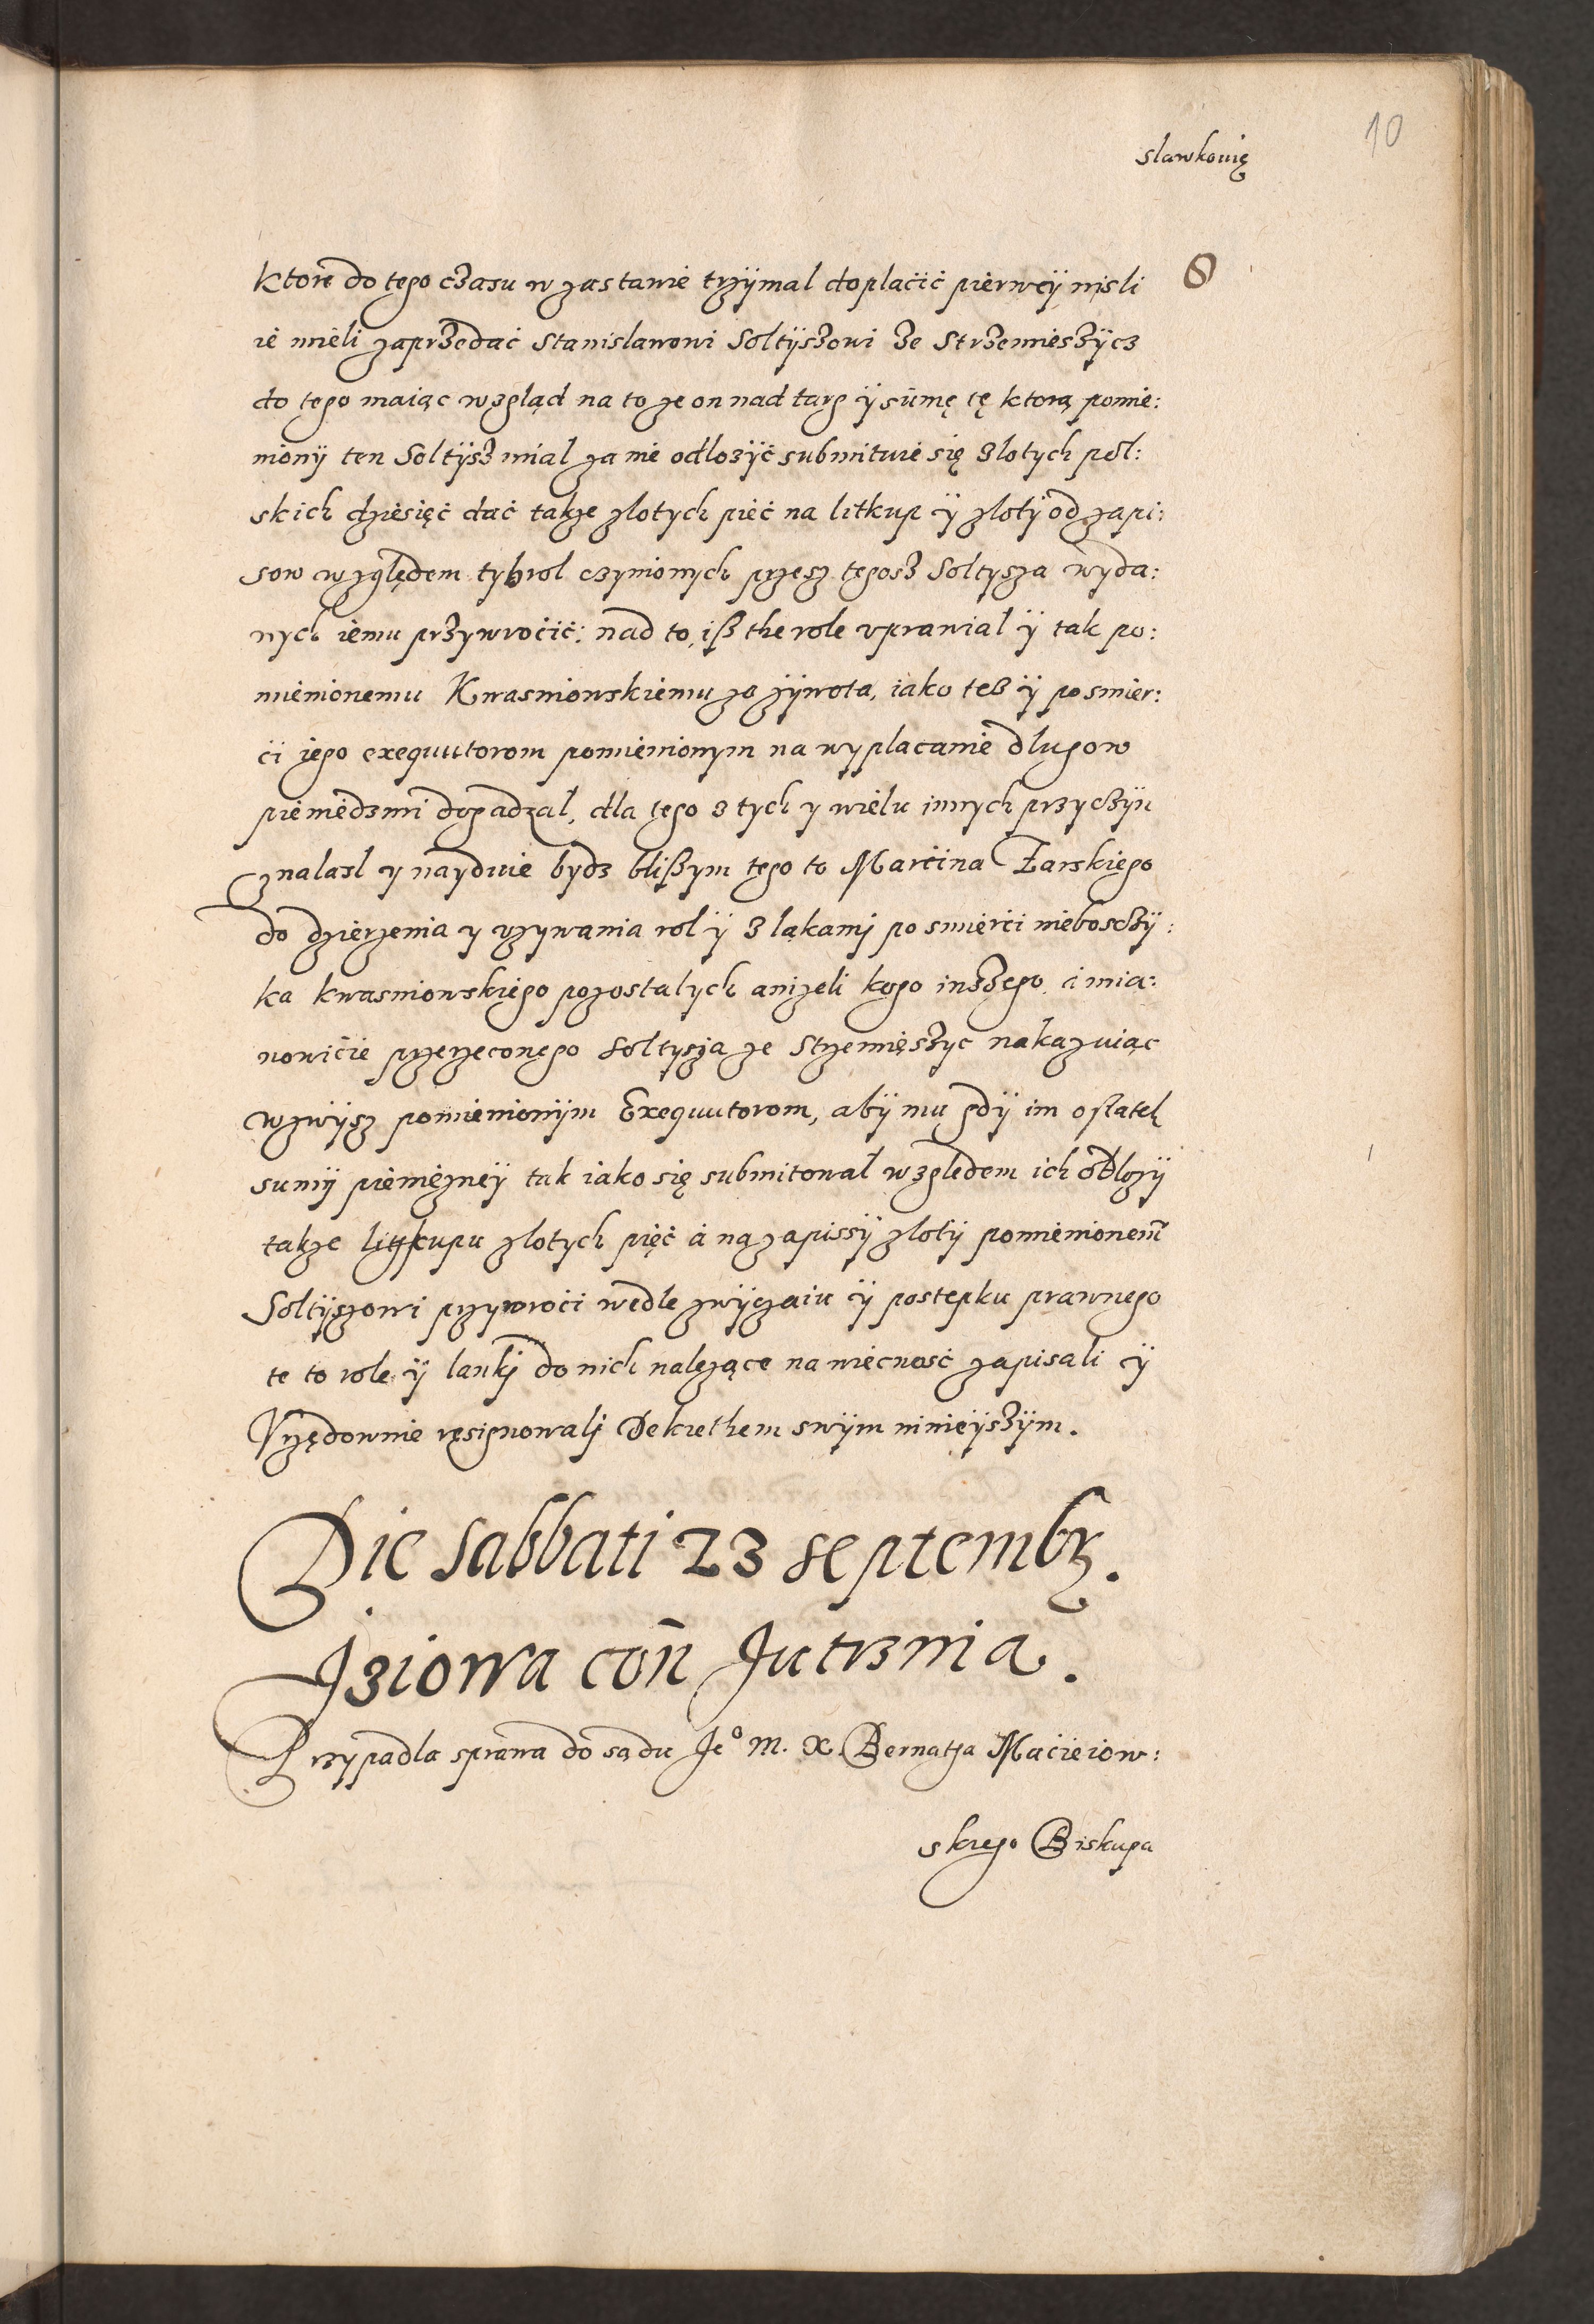 10
Slawkowię
ktore do tego czasu w zastawie trzÿmal doplaćić pierwej niśli
ie mieli zaprzedać Stanislawowi Soltÿszowi ze Strzemieszÿcz
do tego maiąc wzgląd na to ze on nad targ ÿ sumę tę ktorą pomie:
nionÿ ten Soltÿsz mial za nie odlozÿć submituie się zlotych pol:
skich dziesięć dać takze zlotych pięć na litkup ÿ zlotÿ od zapi:
sow względem tych rol czynionych przesz tegosz Soltysza wyda:
nych iemu przywroćić: nad to, iß the role vprawial ÿ tak po:
mienionemu Kwasniowskiemu za zÿwota, iako tesz ÿ po smier:
ći iego exequutorom pomienionym na wyplacanie dlugow
pieniedzmi dogadzal, dla tego z tych y wielu innych przyczÿn
znalasl y nayduie bydz blißym tego to Marćina Żarskiego
do dzierzenia y vzywania rol ÿ z ląkami po smierći nieboszczÿ:
ka kwasniowskiego pozostalych anizeli kogo inszego, i mia:
nowićie przerzeconego Soltysza ze Strzemięszyc nakazuiąc
wzwÿsz pomienionÿm Exequutorom, abÿ mu gdÿ im ostatek
sumÿ pieniężneÿ tak iako się submitowal względem ich odlozÿ
takze litkupu zlotych pięć á na zapissÿ zlotÿ pomienionem̃
Soltÿszowi przywroći wedle zwÿczaiu ÿ postepku prawnego
te to role ÿ lankj do nich nalezące na wiecnosć zapisali ÿ
Vrzędownie resignowalj Dekrethem swÿm ninieÿszÿm.
Die Sabbati 23 Septembr.
Jziowa con̄ Jutrznia.
Przypadla sprawa do sądu Jeº M. X. Bernatza Maćieiow:
skiego Biskupa